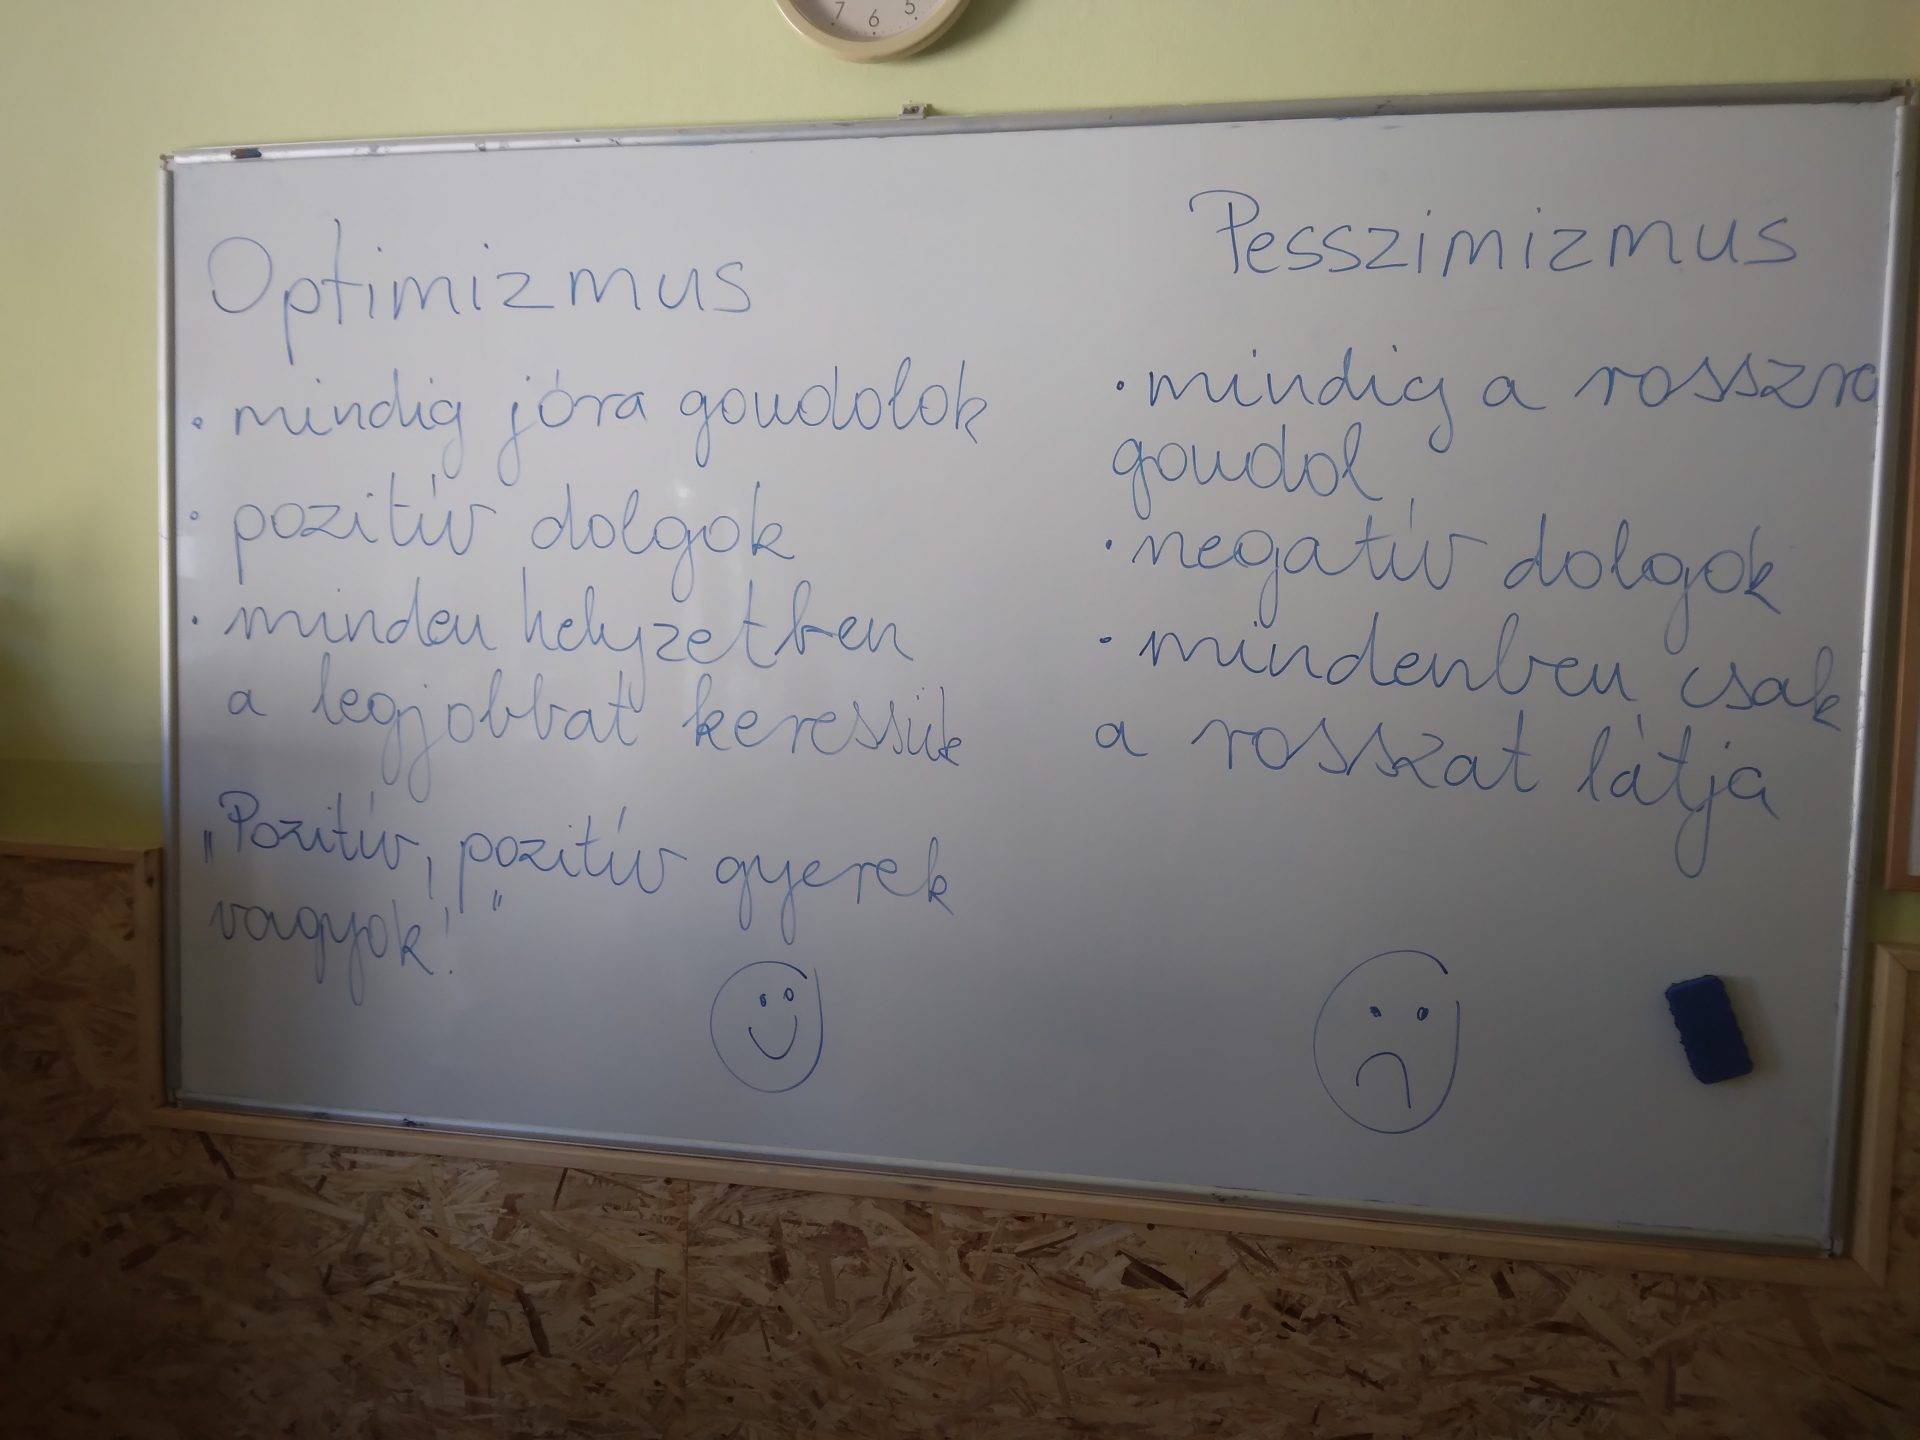 7 6 5
Optimizmus
• mindig jóra gondolok
• pozitív dolgok
• minden helyzetben
a legjobbat keressük
„Pozitív, pozitív gyerek
vagyok!"
Pesszimizmus
• mindig a rosszra
gondol
• negatív dolgok
• mindenben csak
a rosszat látja